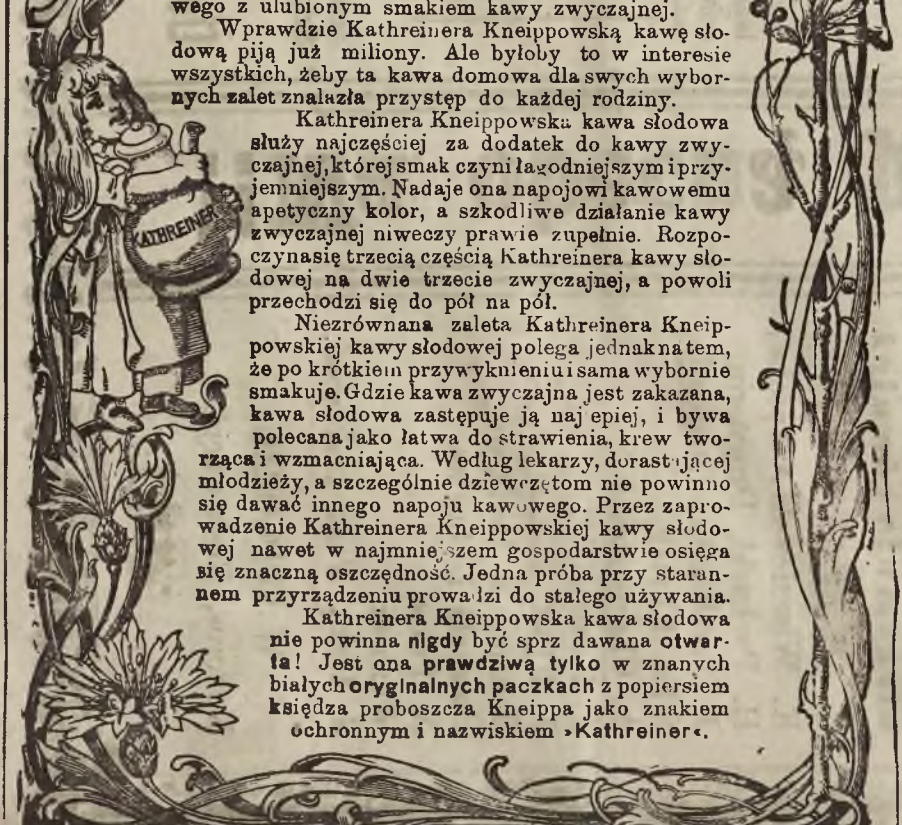 wego z ulubionym smakiem kawy zwyczajnej.
Wprawdzie Kathreinera Kneippowską kawę sło-
dową piją już miliony. Ale byłoby to w interesie
wszystkich, żeby ta kawa domowa dla swych wybor-
nych zalet znalazła przystęp do każdej rodziny.
Kathreinera Kneippowska kawa słodowa
służy najczęściej za dodatek do kawy zwy-
czajnej, której smak czyni łagodniejszym i przy-
jemniejszym. Nadaje ona napojowi kawowemu
apetyczny kolor, a szkodliwe działanie kawy
zwyczajnej niweczy prawie zupełnie. Rozpo-
czyna się trzecią częścią Kathreinera kawy sło-
dowej na dwie trzecie zwyczajnej, a powoli
przechodzi się do pół na pół.
KATHREINER
Niezrównana zaleta Kathreinera Kneip-
powskiej kawy słodowej polega jednak na tem,
że po krótkiem przywyknieniu i sama wybornie
smakuje. Gdzie kawa zwyczajna jest zakazana,
kawa słodowa zastępuje ją najlepiej, i bywa
polecana jako łatwa do strawienia, krew two-
rząca i wzmacniająca. Według lekarzy, dorastającej
młodzieży, a szczególnie dziewczętom nie powinno
się dawać innego napoju kawowego. Przez zapro-
wadzenie Kathreinera Kneippowskiej kawy słodo-
wej nawet w najmniejszem gospodarstwie osięga
się znaczną oszczędność. Jedna próba przy staran-
nem przyrządzeniu prowadzi do stałego używania.
Kathreinera Kneippowska kawa słodowa
nie powinna nigdy być sprzedawana otwar-
ta! Jest ona prawdziwą tylko w znanych
białych oryginalnych paczkach z popiersiem
księdza proboszcza Kneippa jako znakiem
ochronnym i nazwiskiem »Kathreiner«.